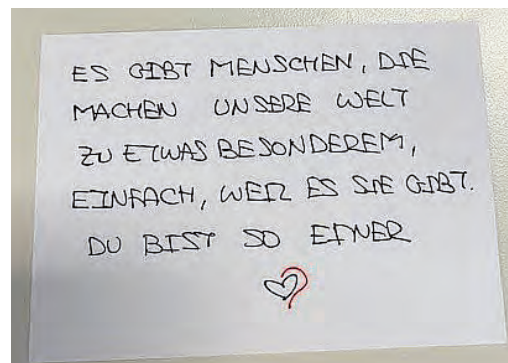 ES GIBT MENSCHEN, DIE
MACHEN UNSERE WELT
ZU ETWAS BESONDEREM,
EINFACH, WEIL ES SIE GIBT.
DU BIST SO EINER